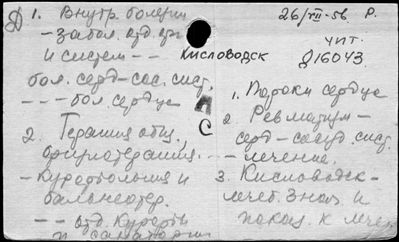 Д 1. Внутр. болезни
- забол. отд. орг.
и систем - -
бол. серд-сос. сист.
- - - бол. сердца
2. Терапия общ.
физиотерапия.
- Курортология и
бальнеотер.
- - отд. курорты
и санатории
КИСЛОВОДСК
Л
С
26/VII-56. Р.
чит.
Д16043
1. Пороки сердца
2. Ревматизм -
серд-сосуд. сист.
- лечение.
3. Кисловодск -
лечеб. знач. и
показ. к леч.